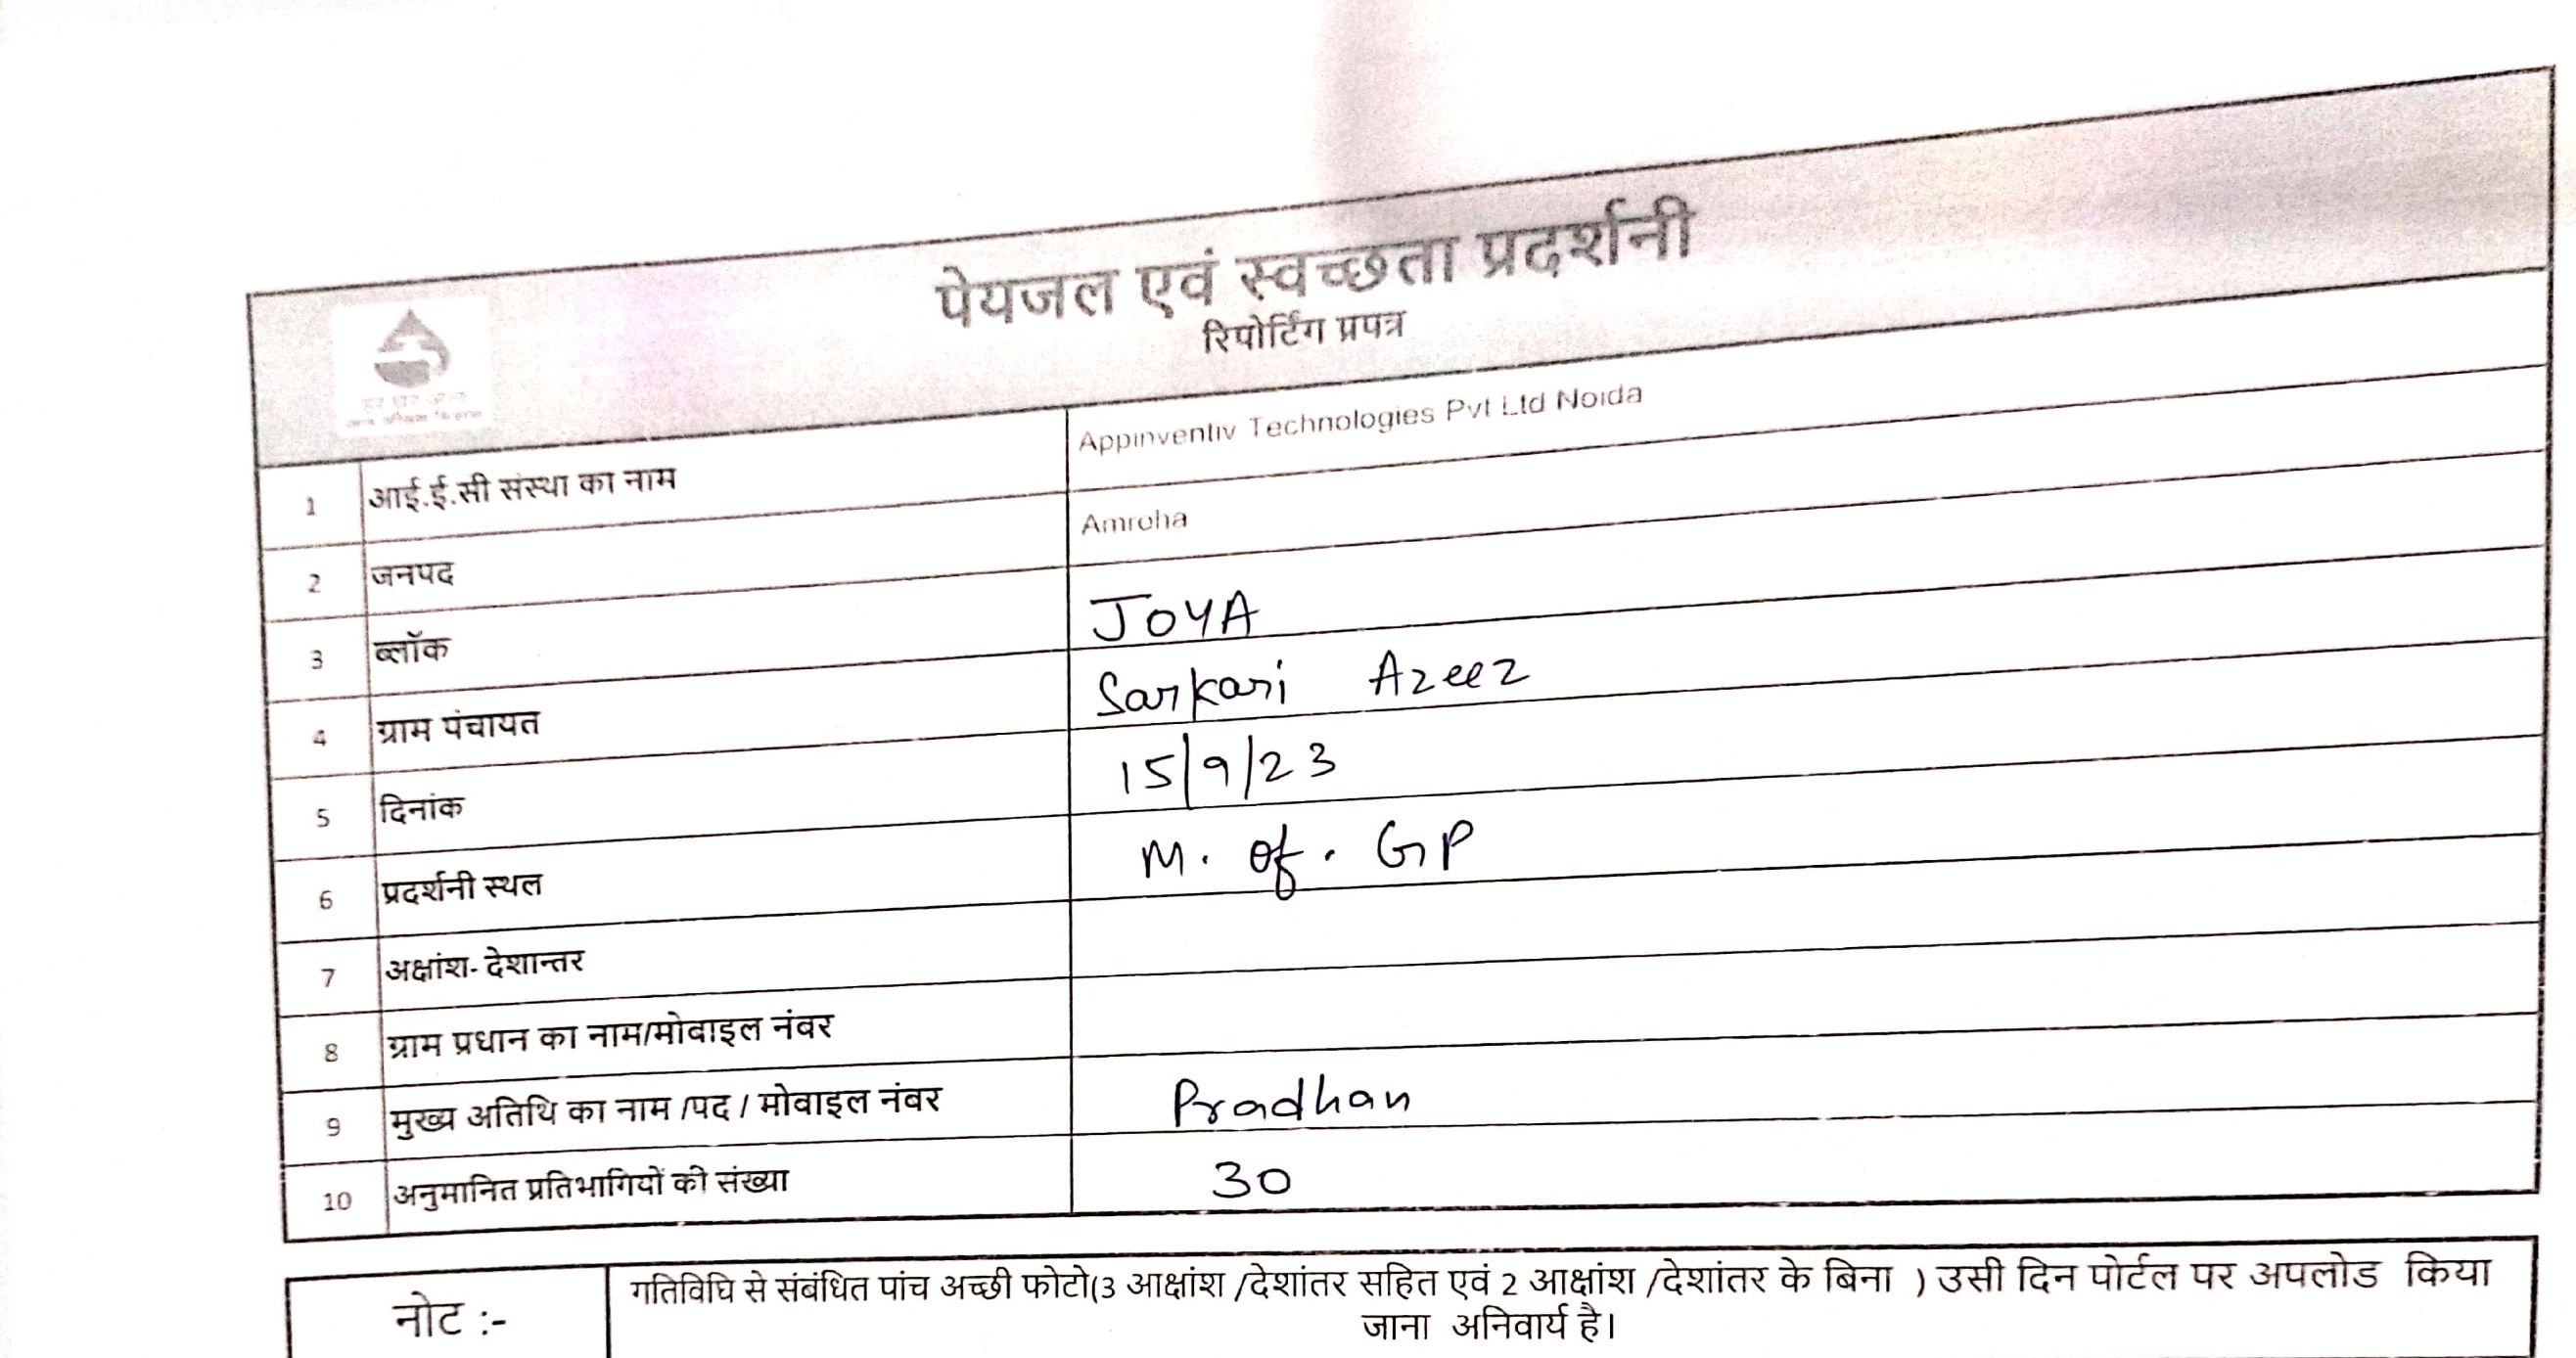 पेयजल एवं स्वच्छता प्रदर्शनी
रिपोर्टिंग प्रपत्र
हर घर जल
1 आई.ई.सी संस्था का नाम Appinventiv Technologies Pvt Ltd Noida
2 जनपद Amroha
3 ब्लॉक JOYA
4 ग्राम पंचायत Sarkari Azeez
5 दिनांक 15/9/23
6 प्रदर्शनी स्थल M. of. GP
7 अक्षांश- देशान्तर
8 ग्राम प्रधान का नाम/मोबाइल नंबर
9 मुख्य अतिथि का नाम /पद / मोबाइल नंबर Pradhan
10 अनुमानित प्रतिभागियों की संख्या 30
नोट :- गतिविधि से संबंधित पांच अच्छी फोटो(3 आक्षांश /देशांतर सहित एवं 2 आक्षांश /देशांतर के बिना ) उसी दिन पोर्टल पर अपलोड किया
जाना अनिवार्य है।